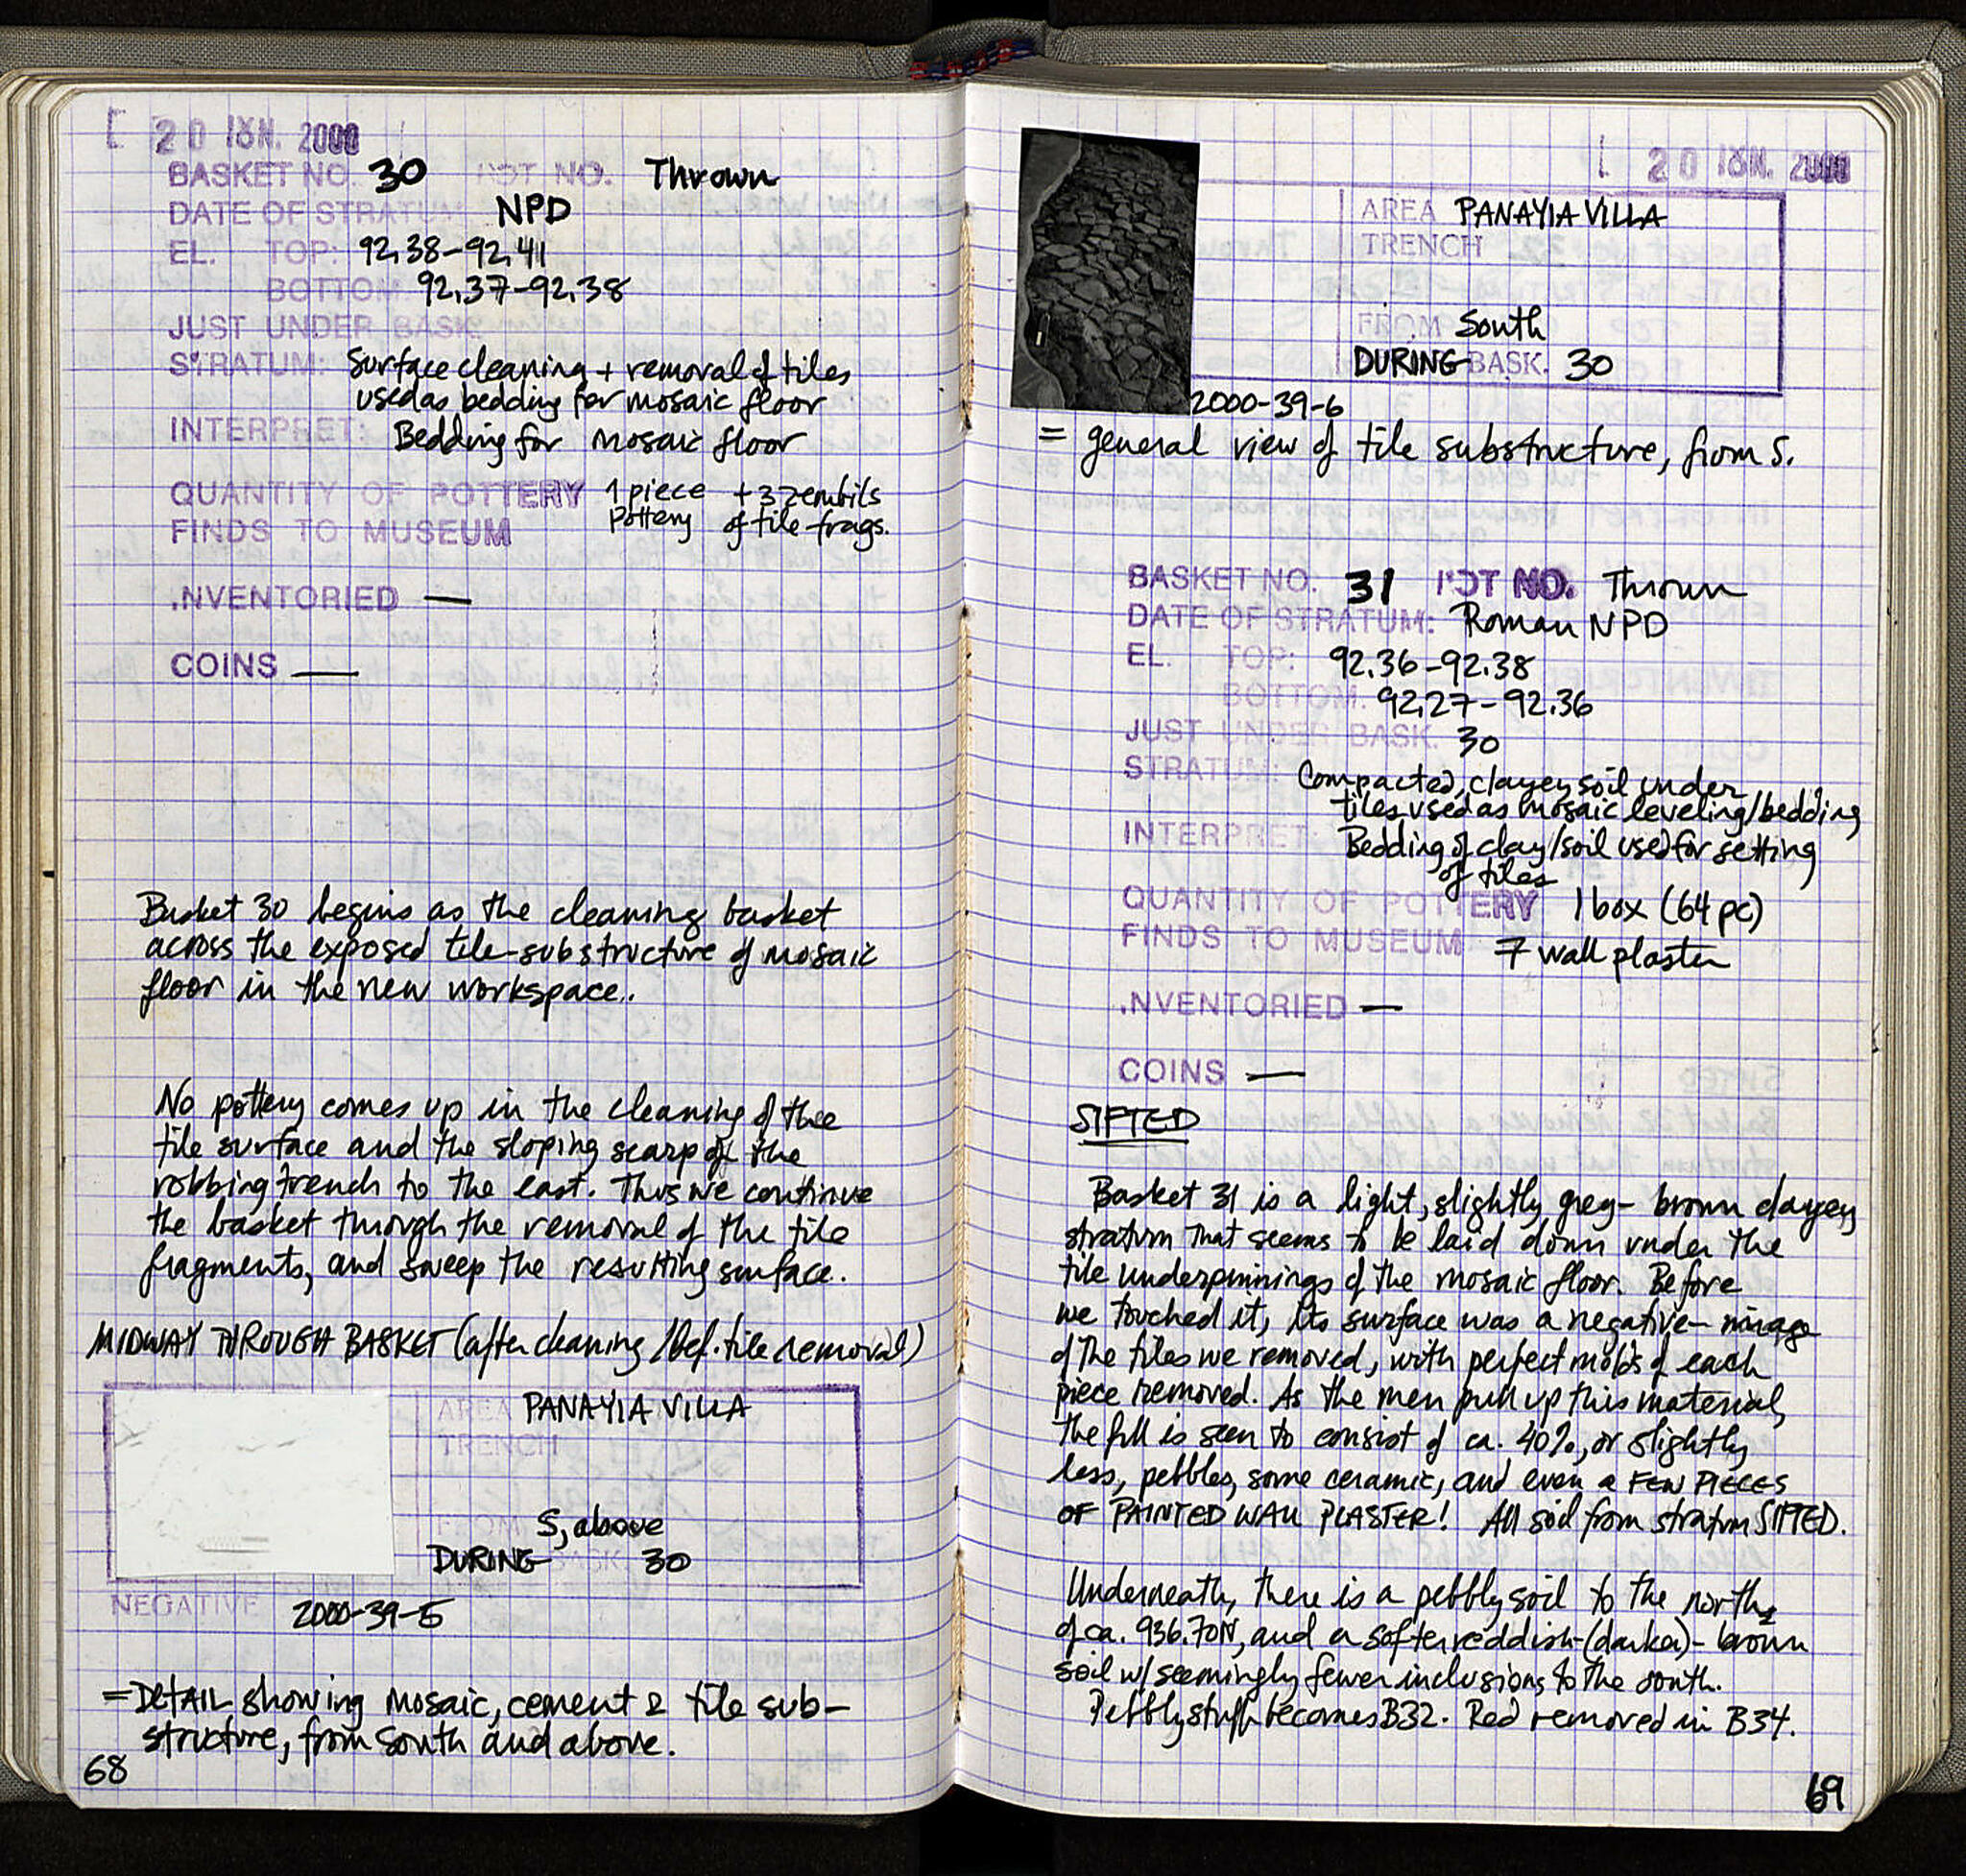 [ 20 ΙΟΥΝ. 2000
BASKET NO. 30 POT NO. Thrown
DATE OF STRATUM: NPD
EL. TOP: 92.38-92.41
BOTTOM: 92.37-92.38
JUST UNDER BASK.
STRATUM: Surface cleaning + removal of tiles
used as bedding for mosaic floor
INTERPRET: Bedding for mosaic floor
QUANTITY OF POTTERY 1 piece + 3 zembils
Pottery of tile frags.
FINDS TO MUSEUM
.NVENTORIED —
COINS —
Basket 30 begins as the cleaning basket
across the exposed tile-substructure of mosaic
floor in the new workspace..
No pottery comes up in the cleaning of thee
tile surface and the sloping scarp of the
robbing trench to the east. Thus we continue
the basket through the removal of the tile
fragments, and sweep the resulting surface.
MIDWAY THROUGH BASKET (after cleaning / bef. tile removal)
AREA PANAYIA VILLA
TRENCH
FROM S, above
DURING BASK. 30
NEGATIVE 2000-39-5
= DETAIL showing mosaic, cement & tile sub-
structure, from south and above.
68
[ 20 ΙΟΥΝ. 2000
AREA PANAYIA VILLA
TRENCH
FROM South
DURING BASK. 30
2000-39-6
= general view of tile substructure, from S.
BASKET NO. 31 POT NO. Thrown
DATE OF STRATUM: Roman NPD
EL. TOP: 92.36-92.38
BOTTOM. 92.27-92.36
JUST UNDER BASK. 30
STRATUM: Compacted, clayey soil under
tiles used as mosaic leveling/bedding
INTERPRET: Bedding of clay/soil used for setting
of tiles
QUANTITY OF POTTERY 1 box (64 pc)
FINDS TO MUSEUM 7 wall plaster
.NVENTORIED —
COINS —
SIFTED
Basket 31 is a light, slightly grey-brown clayey
stratum that seems to be laid down under the
tile underpinnings of the mosaic floor. Before
we touched it, its surface was a negative-mirage
of the tiles we removed, with perfect molds of each
piece removed. As the men pull up this material,
the fill is seen to consist of ca. 40%, or slightly
less, pebbles, some ceramic, and even a FEW PIECES
OF PAINTED WALL PLASTER! All soil from stratum SIFTED.
Underneath, there is a pebbly soil to the north
of ca. 936.70N, and a softer reddish-(darker)-brown
soil w/ seemingly fewer inclusions to the south.
Pebbly stuff becomes B32. Red removed in B34.
69